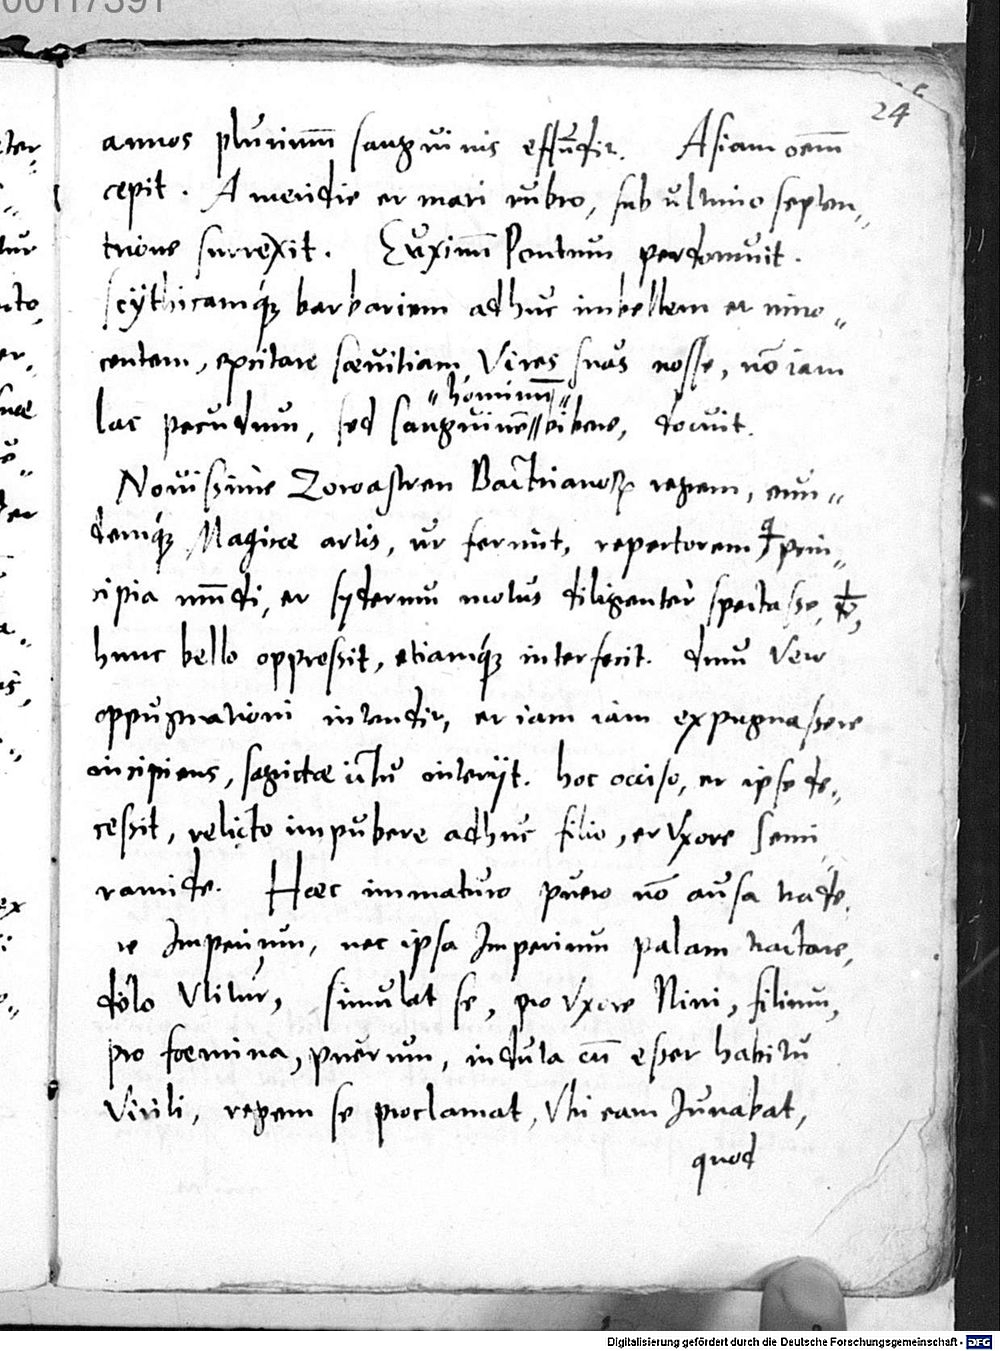 00117391
24
annos plurimū sanguinis effūdit. Asiam oēm
cepit. A meridie et mari rubro, sub ultimo septen„
trione surrexit. Euxinū Pontum perdomuit.
scÿthicamq́ꝫ barbariem adhuc imbellem et inno„
centem, excitare sævitiam, Vires suas nosse, nō iam
„hominū„
lac pecudum, sed sanguinē„bibere, docuit.
Novissime Zoroastren Bactrianoꝝ regem, eun„
demq́ꝫ Magicæ artis, ut ferunt, repertorem, q prin„
cipia mūdi, et syderum motus diligenter spectasse,
hunc bello oppressit, etiamq́ꝫ interfecit. dum Vero
oppugnationi intendit, et iam iam expugnassere
incipiens, sagittæ ictu interijt. hoc occiso, et ipse de„
cessit, relicto impubere adhuc filio, et Vxore Semi„
ramide. Hæc immaturo puero nō ausa trade„
re Imperium, nec ipsa Imperium palam tractare,
dolo Vtitur, simulat se, pro Vxore Nini, filium,
pro foemina, puerum, induta em̄ esset habitu
Virili, regem se proclamat, Vbi eam Juvabat,
quod
Digitalisierung gefördert durch die Deutsche Forschungsgemeinschaft - DFG